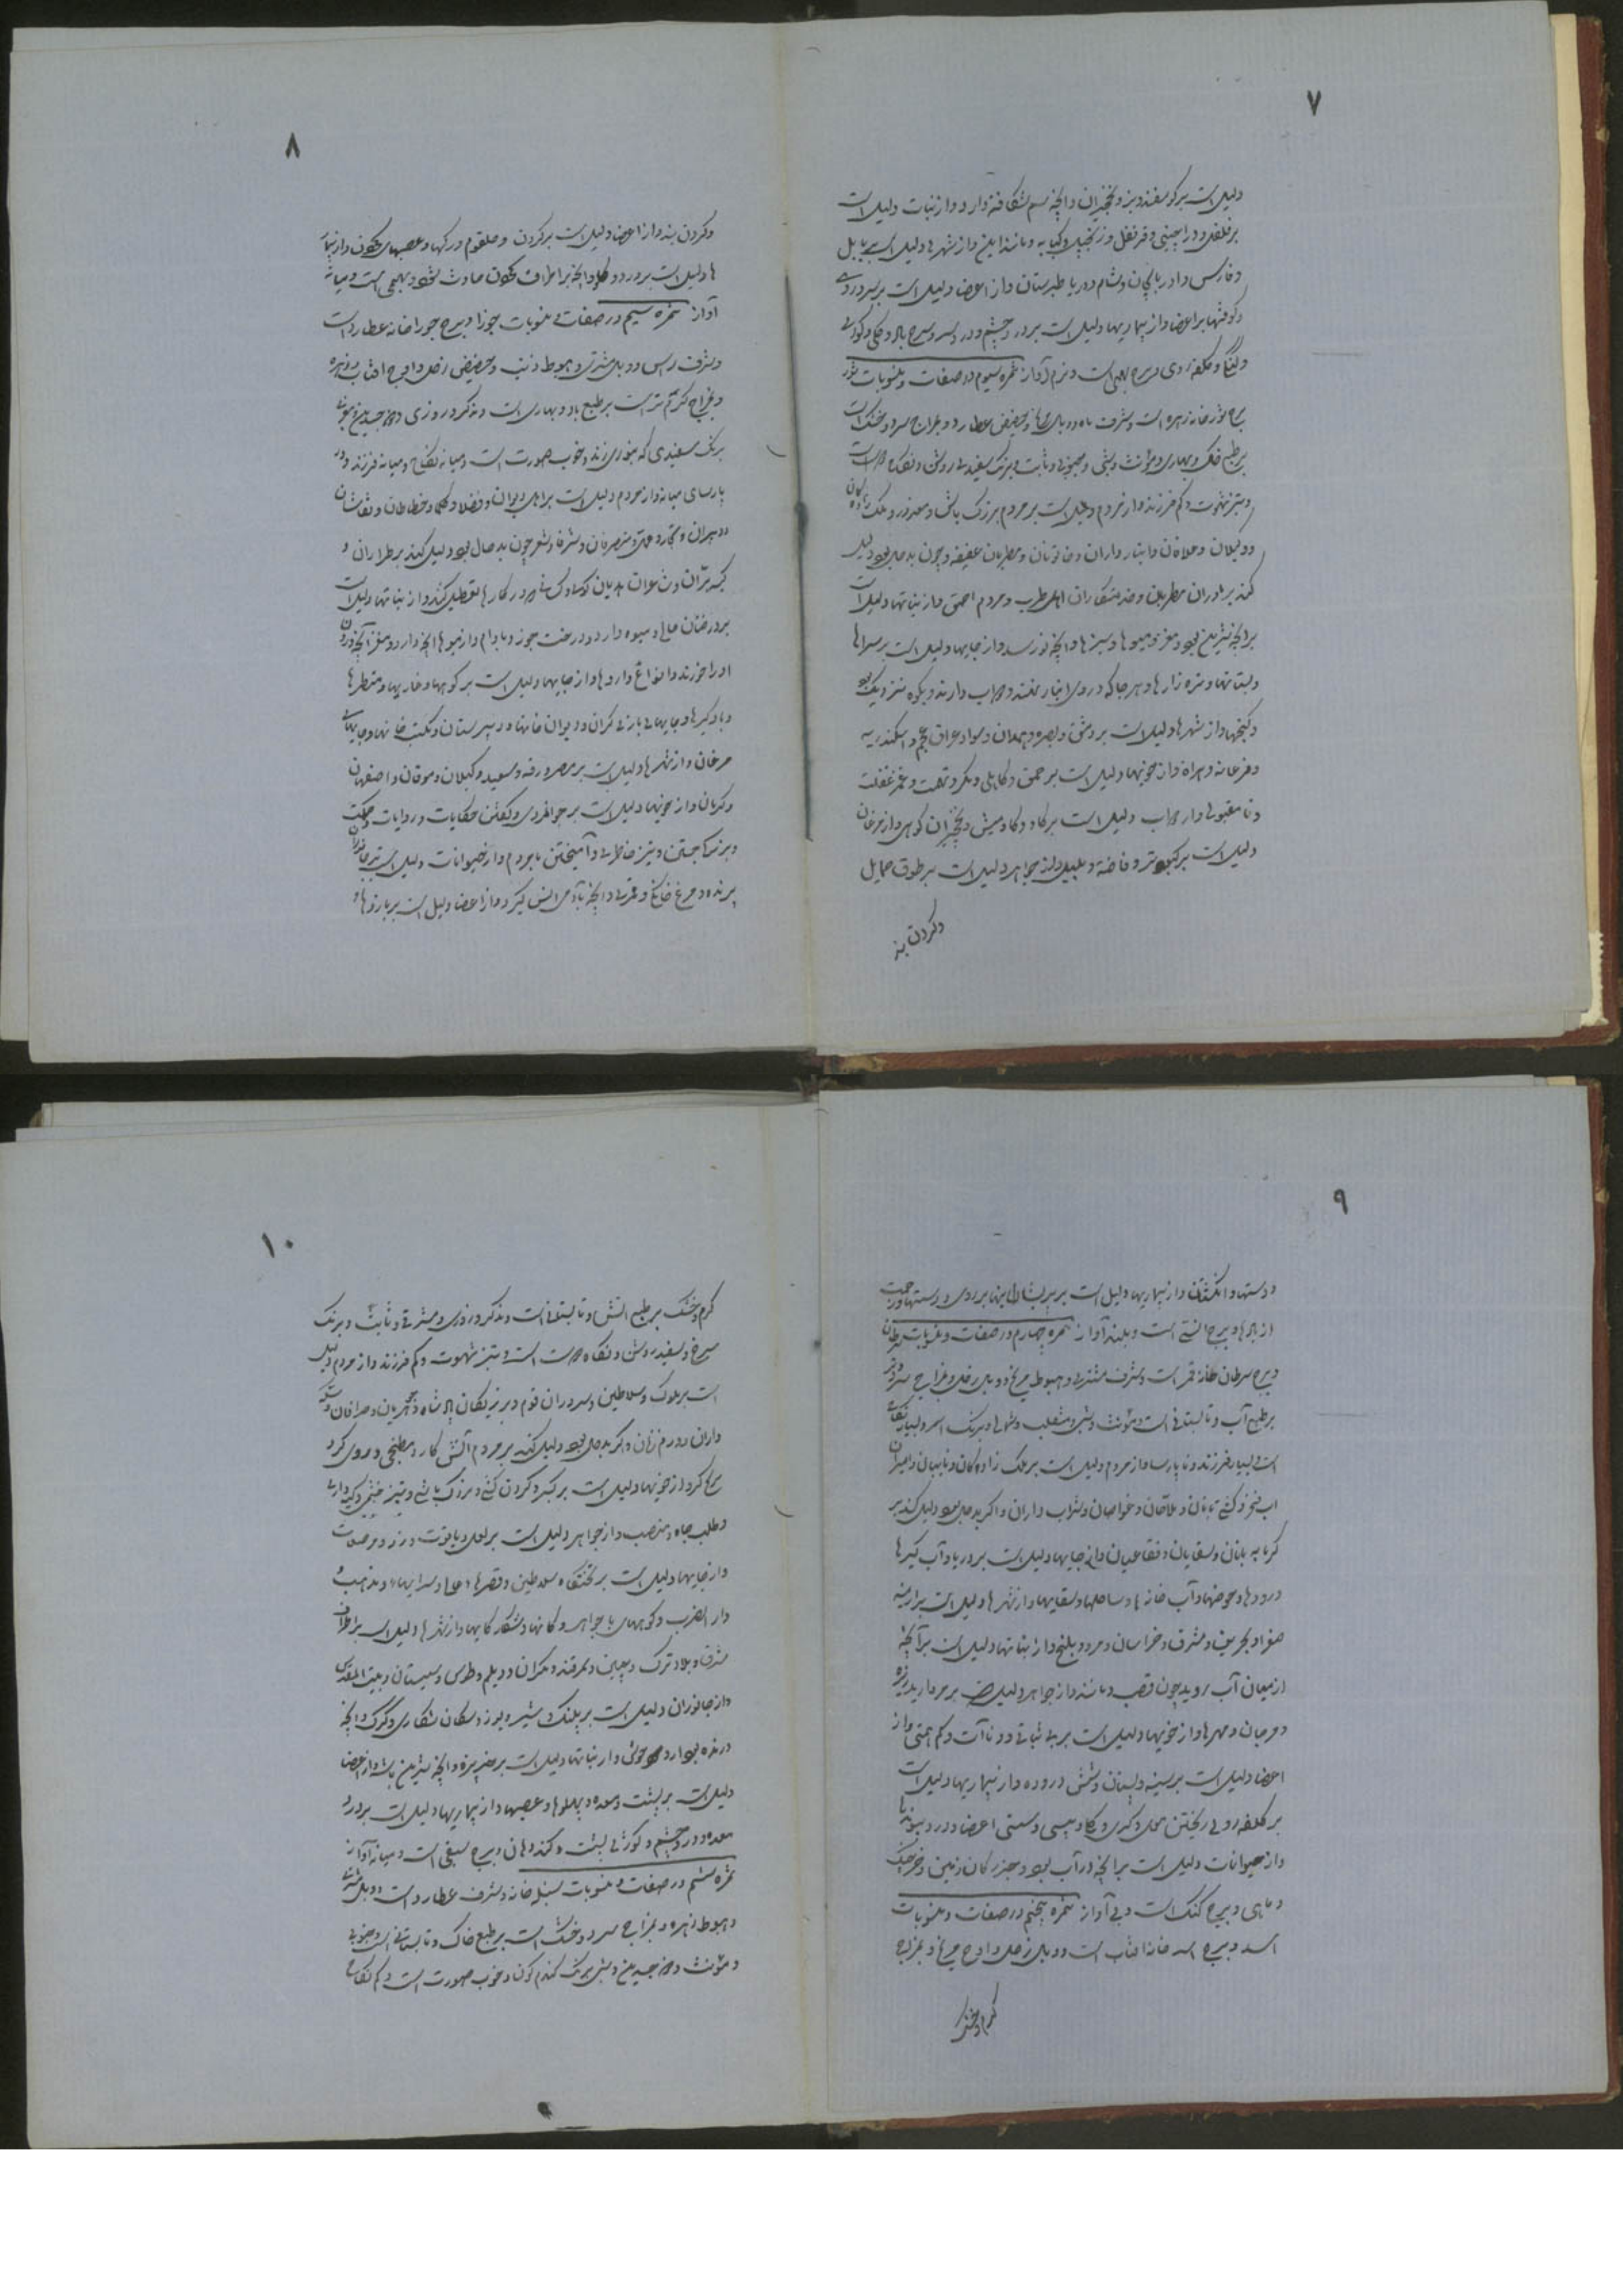 ۷
دلیل است بر گوسفند و بز و نخجیران و آنچه سم شکافته دارد و از نبات دلیل است
بر فلفل و دارچینی و قرنفل و زنجبیل و کبابه و مانند این و از شهرها دلیل است بر بابل
و فارس و ادربایجان و شام و دریا طبرستان و از اعضا دلیل است بر سر و روی
و کوفتها بر اعضا و از بیماریها دلیل است بر درد چشم و درد سر و سرخ باد و کلی و کودکی
و کلفه روی و برج بهیمی است و نرم آواز ثمره سیوم در صفات و منسوبات ثور
برج ثور خانه زهره است و شرف ماه و وبال مریخ و حضیض عطارد و بمزاج سرد و خشک است
بر طبع خاک و بهاری و مؤنث و شبی و جنوبی و ثابت و برنگ سفید روشن و نگاه
و تیز شهوت و کم فرزند و از مردم دلیل است بر مردم بزرگ باش و معذور و ملک زادگان
و وکیلان و علافان و انبار داران و خاتونان و مطربان عفیفه و چون بدحال بود دلیل
کند بر مادران مطربان و خدمتکاران اهل طرب و مردم احمق و از نباتها دلیل است
بر آنچه شیرین بود و مغز و میوها و سبزها و آنچه نو رسد و از جایها دلیل است بر سراها
و بستانها و سبزه زارها و هر جا که در وی انبار غله و دواب دارند و بکوه نزدیک بود
و گنجها و از شهرها دلیل است بر دمشق و بصره و همدان و سواد عراق عجم و اسکندریه
و فرغانه و هراة و از خویها دلیل است بر حمق و کاهلی و مکر و تهمت و غم غفلت
و نامقبولی و از دواب دلیل است بر گاو و گاومیش و نخجیران کوهی و از مرغان
دلیل است بر کبوتر و فاخته و بلبل و از جواهر دلیل است بر طوق حمایل
و گردن بند
۸
و گردن بند و از اعضا دلیل است بر گردن و حلقوم و رگها و عصبهای و از بیما
ها دلیل است بر درد و آنچه بر اطراف حادث شود و بهیمی است و میانه
آواز ثمره سیم در صفات منسوبات جوزا و برج جوزا خانه عطارد است
و شرف راس و وبال مشتری و هبوط ذنب و حضیض زحل و اوج افتاب و زهره
و بمزاج گرم تر است بر طبع باد و بهاری است و مذکر و روزی و ذو جسدین و مغربی
برنگ سفیدی که بزردی زند و خوب صورت است و میانه نکاح و میانه فرزند و در
پارسای میانه و از مردم دلیل است بر اهل دیوان و فضلا و حکما و خطاطان و نقاشان
و دبیران و تجار و متصرفان و شرفا و شعر چون بدحال بود دلیل کند بر طراران و
کیسه بران و کسانی که در کارها تعطیل کنند و از نباتها دلیل است
بر درختان عالی و میوه دار و درخت جوز و بادام و از میوها آنچه دارد و مغز آنچه درون
او را خورند و انواع داروها و از جایها دلیل است بر کوهها و
و بادگیرها و جایهای بازی گران و دیوان خانها و دبیرستان و مکتب خانها و جایهای
مرغان و از شهرها دلیل است بر مصر و رقه و سعید و گیلان و موقان و اصفهان
و کرمان و از خویها دلیل است بر جوانمردی و گفتن حکایات و روایات و حکمت
و بزرگا جستن و تیز خاطری و آمیختن با مردم و از حیوانات دلیل است بر جانوران
پرنده و مرغ خانگی و قمری و آنچه با آدمی انس گیرد و از اعضا دلیل است بر بازوها و
۹
و دستها و انگشتان و از بیماریها دلیل است بر پریشانی
از بادها و برج انسی است و بلند آواز ثمره چهارم در صفات و منسوبات سرطان
و برج سرطان خانه قمر است و شرف مشتری و هبوط مریخ و وبال زحل و بمزاج سرد و تر
بر طبع آب و تابستانی است و مؤنث و شبی و منقلب و شمالی و برنگ اسمر و بسیار نکاح
است بسیار فرزند و نا پارسا و از مردم دلیل است بر ملک زادگان و نایبان و امیران
و کشتی بانان و ملاحان و غواصان و شراب داران و اگر بدحال بود دلیل کند بر
گرمابه بانان و سقایان و فقاعیان و از جایها دلیل است بر دریا و آب گیرها
و رودها و حوضها و آب خانه ها و ساحلها و سقایها و از شهرها دلیل است بر ارمنیه
صغرا و بحرین و مشرق و خراسان و مرو و بلخ و از نباتها دلیل است بر آنچه
از میان آب روید چون قصب و مانند و از جواهر دلیل است بر مروارید ریزه
و مرجان و مهرها و از خویها دلیل است بر بی ثباتی و دونات و کم همتی و از
اعضا دلیل است بر سینه و پستان و شش و روده و از بیماریها دلیل است
بر کلفه روی ریختن موی و کری و سستی اعضا و درد پیوندها
و از حیوانات دلیل است بر آنچه در آب بود و خزندگان زمین و خرچنگ
و ماهی و برج گنگ است و بی آواز ثمره پنجم در صفات و منسوبات
اسد و برج اسد خانه افتاب است و وبال زحل و اوج مریخ و بمزاج
گرم و خشک
۱۰
گرم و خشک بر طبع آتش و تابستانی است و مذکر و روزی و مشرقی و ثابت و برنگ
سرخ و سفید روشن و نگاه است است و تیز شهوت و کم فرزند و از مردم دلیل
است بر ملوک و سلاطین و سروران قوم و بزرگان پادشاه و و صرافان و سکه
داران و درم زنان و اگر بدحال بود دلیل کند بر مردم آتش کار و مطبخی و
و از خویها دلیل است بر کبر و گردن کشی و بزرگ باشی و تیز خشمی و کینه داری
و طلب جاه و منصب و از جواهر دلیل است بر لعل و یاقوت و زر و مرصعات
و از جایها دلیل است بر تختگاه سلاطین و قصرها عالی و سرایها و مذهب و
دار الضرب و کوههای با جواهر و کانها و شکارگاهها و از شهرها دلیل است بر اطراف
مشرق و بلاد ترک و چین و سمرقند و مکران و دیلم و طوس و سیستان و بیت المقدس
و از جانوران دلیل است بر پلنگ و شیر و یوز و سگان شکاری و گرگ و آنچه
درنده بود و از نباتها دلیل است بر خربزه و آنچه شیرین باشد و از اعضا
دلیل است بر پشت و معده و پهلوها و عصبها و از بیماریها دلیل است بر درد
معده و درد چشم و کوژی پشت و گند دهان و برج سبعی است و میانه آواز
ثمره ششم در صفات و منسوبات سنبله خانه و شرف عطارد است و وبال مشتری
و هبوط زهره و بمزاج سرد و خشک است بر طبع خاک و تابستانی است و جنوبی
و مؤنث و ذو جسدین و شبی برنگ گندم گون و خوب صورت است و کم نکاح